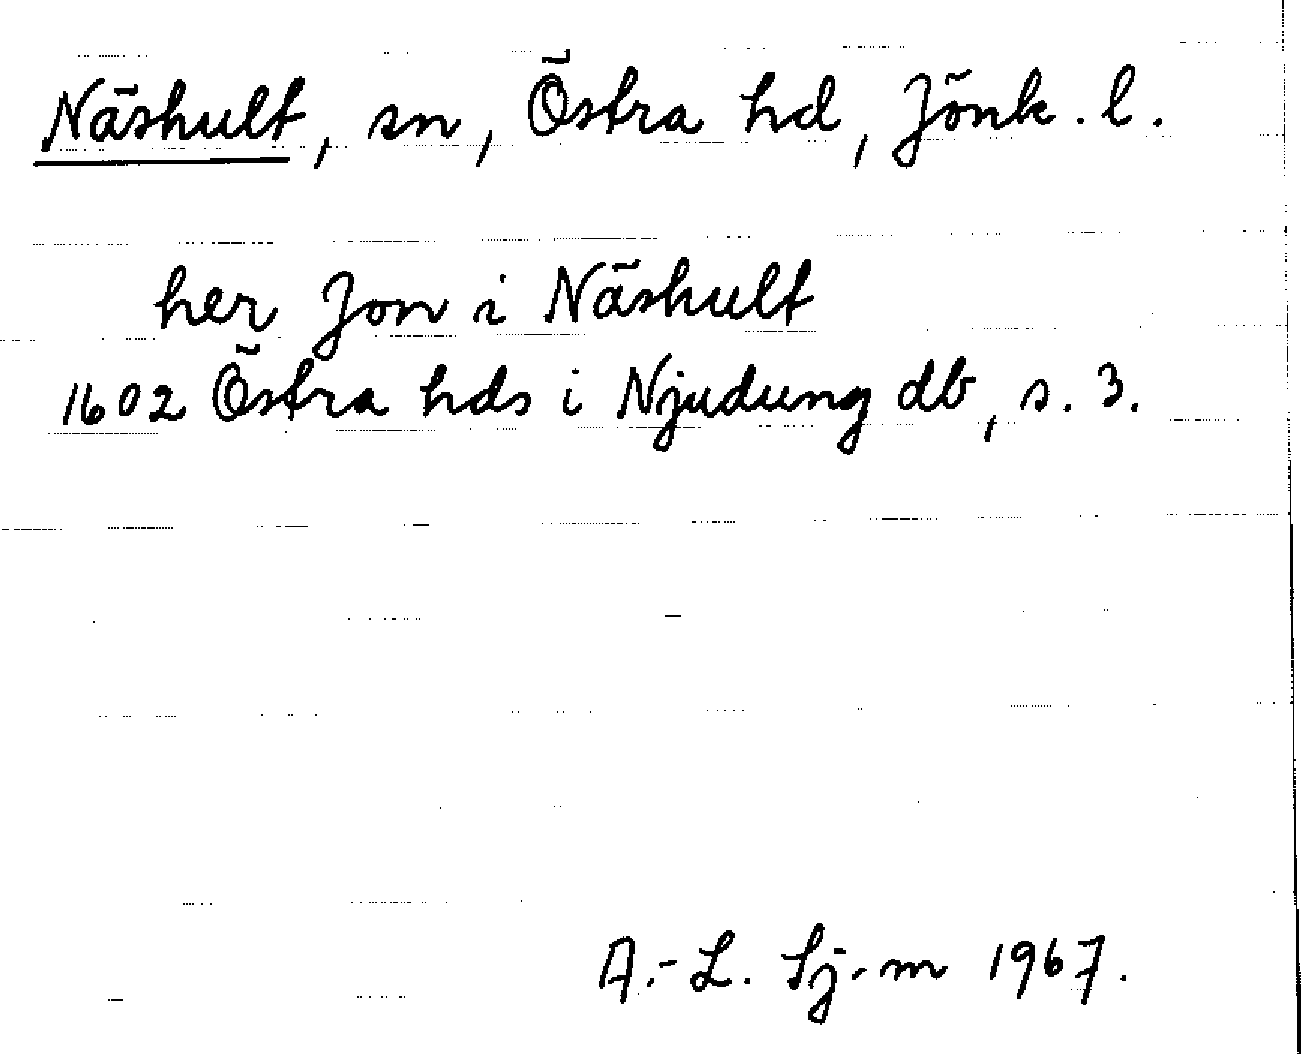 Näshult, sn, Östra hd, Jönk. l.
her Jon i Näshult
1602 Östra hds i Njudung db, s. 3.
A.-L. Sj-m 1967.